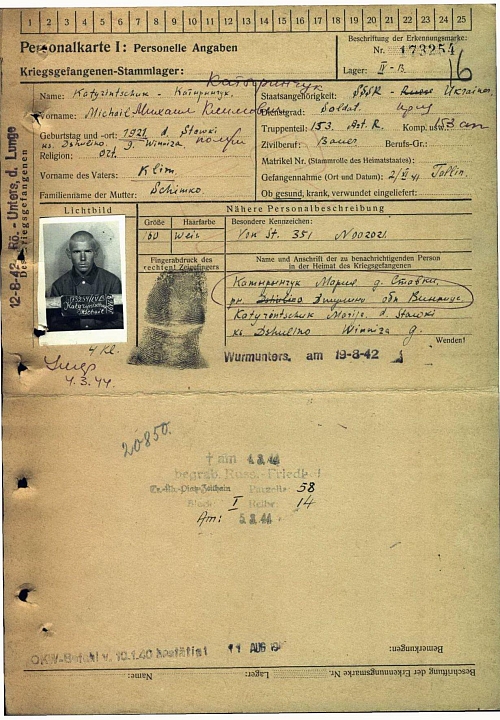 1 2 3 4 5 6 7 8 9 10 11 12 13 14 15 16 17 18 19 20 21 22 23 24 25
Personalkarte I: Personelle Angaben
Beschriftung der Erkennungsmarke:
Nr. 173254
Kriegsgefangenen-Stammlager:
Lager: IV-B
16
Катыринчук
Name: Katyrintschuk - Катиринчук,
Staatsangehörigkeit: SSSR Russe Ukrainer
Vorname: Michail Михаил
Dienstgrad: Soldat.
Geburtstag und -ort: 1921. d. Stawki
Truppenteil: 153. Art. R. Komp. usw.:
ks. Dshulino. g. Winniza
Religion: Ort.
Zivilberuf: Bauer Berufs-Gr.:
Matrikel Nr. (Stammrolle des Heimatstaates):
Vorname des Vaters: Klim.
Gefangennahme (Ort und Datum): Tallin.
Familienname der Mutter: Schimko.
Ob gesund, krank, verwundet eingeliefert:
12-8-42 Rö.-Unters. d. Lunge
des Kriegsgefangenen
Lichtbild
Nähere Personalbeschreibung
Größe Haarfarbe
Besondere Kennzeichen:
160 Weis
Von St. 351 No 02021.
Fingerabdruck des rechten! Zeigefingers
Name und Anschrift der zu benachrichtigenden Person
in der Heimat des Kriegsgefangenen
Катыринчук Мария д. Ставки,
рн. Джулино обл Винница
Katyrintschuk Marija. d. Stawki
ks Dshulino Winniza g.
Wenden!
Wurmunters. am 19-8-42
4.3.44.
20850.
† am 4.3.44
begrab. Russ.-Friedh. I
Tr.-Üb.-Platz Zeithain Parzelle 58
Block I Reihe 14
Am: 5.3.44
OKW-Befehl v. 10.1.40 bestätigt 11 AUG
Bemerkungen:
Beschriftung der Erkennungsmarke Nr.
Lager:
Name: